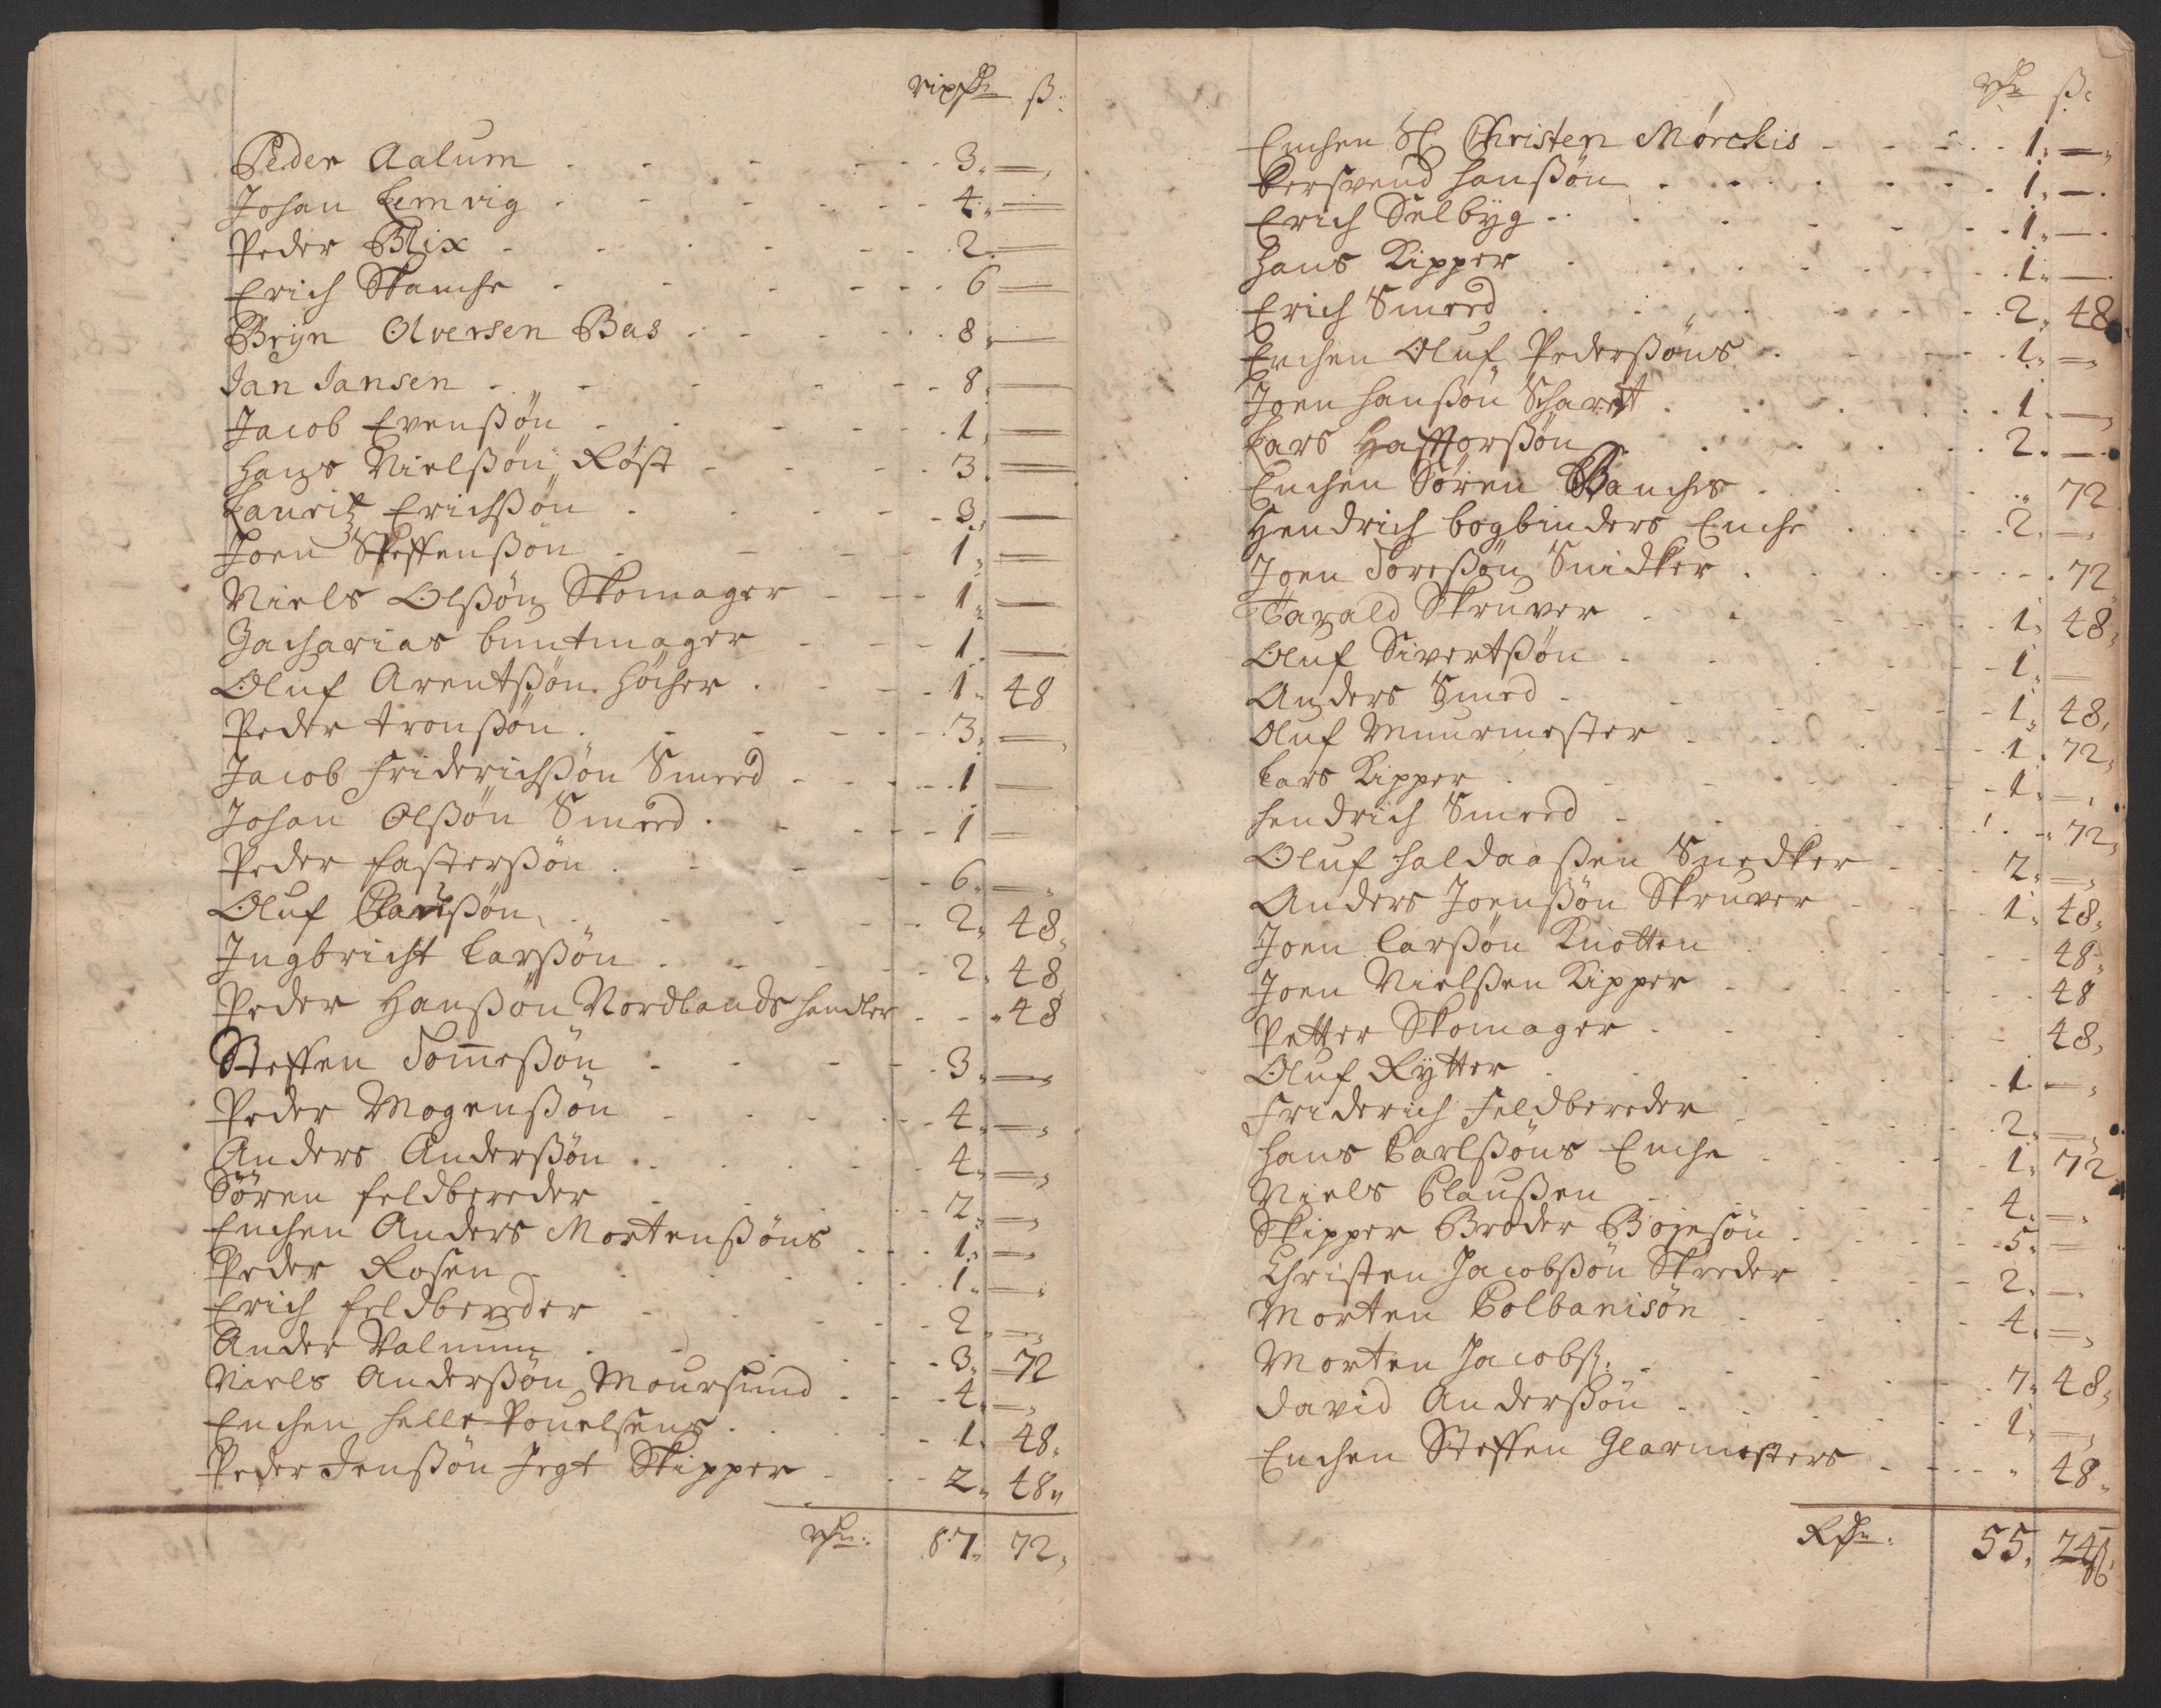 ß:
Peder Aalum 3. —
Johan Lemvig 4. —
Peder Blix 2. —
Erich Stanche 6 —
Brijn Olversen Bas 8. —
Jan Jansen 8. —
Jacob Evenßön 1. —
Hans Nielßön Röst 3. —
Lauritz Erichßön 3. —
Joen Steffenßön 1. —
Niels Olßön Skomager 1. —
Zacharias buntmager 1. —
Oluf Arentßön Höcher 1. 48
Peder tronßön 3. —
Jacob Friderichßön Smed 1 —
Johan Olßön Smed 1 —
Peder fasterßön 6. —
Oluf Claußön 2. 48
Ingbricht Larßön 2. 48
Peder Hanßön Nordlands handler 48
Steffen Tom̅eßön 3. —
Peder Mogenßön 4. —
Anders Anderßön 4. —
Sören feldbereder 2. —
Enchen Anders Mortenßöns 1. —
Peder Rosen 1. —
Erich feldbereder 2. —
Ander Valmum 3. 72
Niels Anderßön Moursund 4. —
Enchen helle Pouelsens 1. 48.
Peder Jenßön Jegt Skipper 2. 48
87. 72.
ß.
Enchen Sl Christen Mörchis 1. —
Bersvend Hanßön 1. —
Erich Selbyg 1. —
Hans Kipper 1. —
Erich Smed 2. 48
Enchen Oluf Pederßöns 1. —
Joen Hanßön 1. —
Lars Hafforßön 2. —
Enchen Sören Banches 72
Hendrich bogbinders Enche 2. —
Joen Toreßön Snidker 72
Tarald Skruver 1. 48
Oluf Sivertßön 1. —
Anders Smed 1. 48.
Oluf Muurmester 1. 72
Lars Kipper 1. —
Hendrich Smed 72
Oluf Haldaaßen Snedker 2. —
Anders Joenßön Skruver 1. 48.
Joen Larßön Knotten 48
Joen Nielßen Kipper 48
Petter Skomager 48
Oluf Rytter 1. —
Friderich Feldbereder 2. —
Hans Carlßöns Enche 1. 72
Niels Claußen 4. —
Skipper Broder Bojesön 5. —
Christen Jacobßön Skreder 2. —
Morten Colbanisön 4. —
Morten Jacobß: 7. 48
David Anderßön 1. —
Enchen Steffen Glarmesters 48
55. 24ß